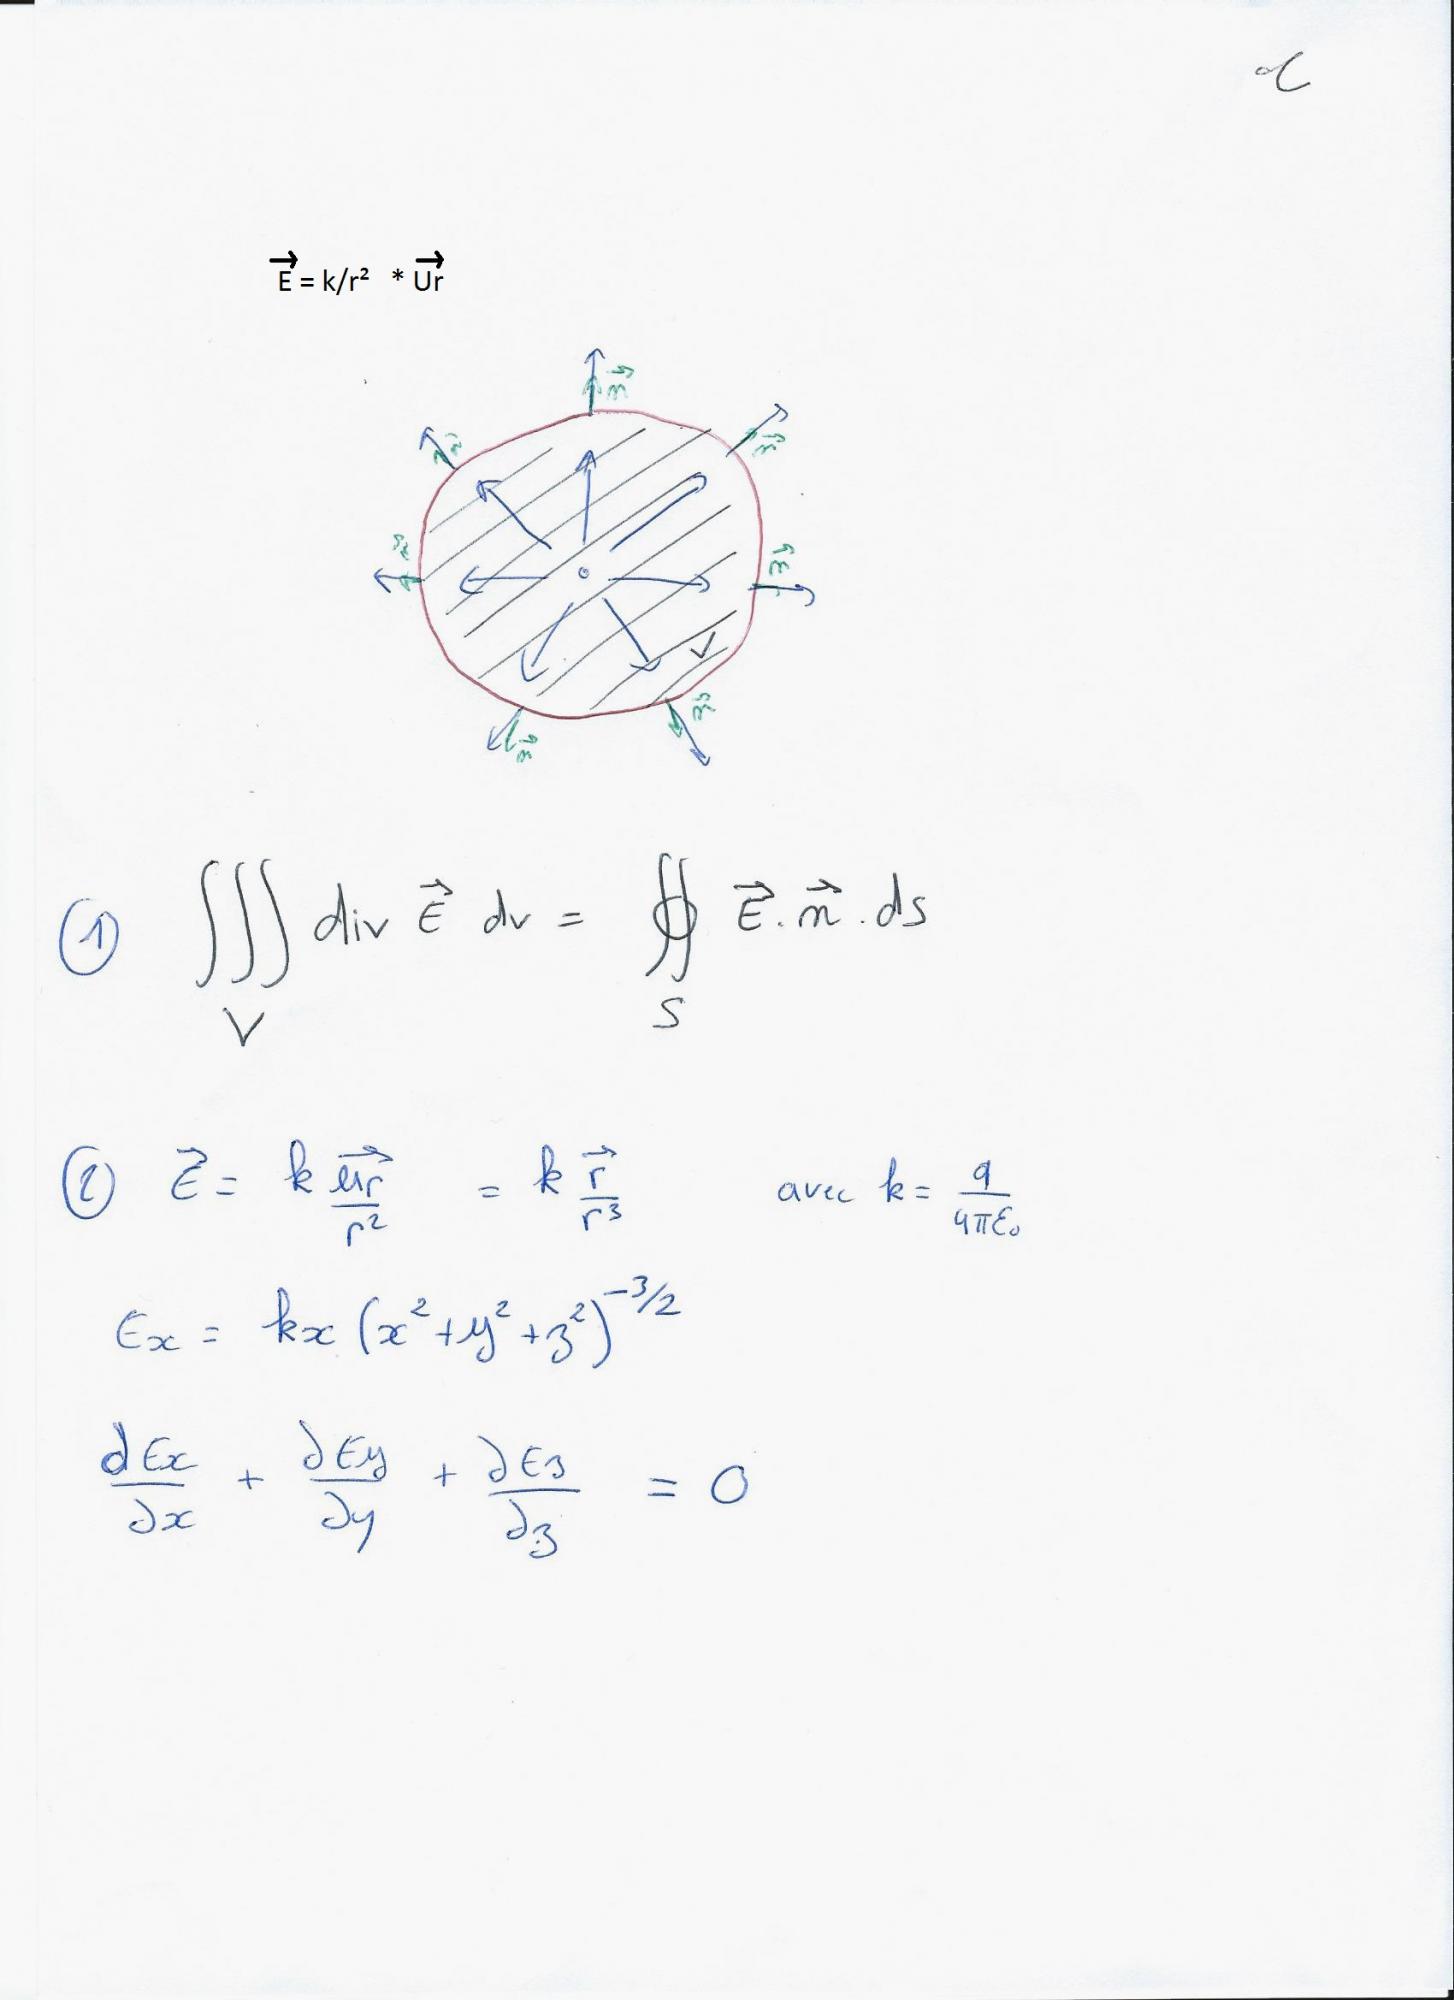 E⃗ = k/r² * U⃗r
n⃗
n⃗
n⃗
n⃗
n⃗
V
n⃗
n⃗
① ∭ div E⃗ dv = ∯ E⃗ . n⃗ . ds
V S
② E⃗ = k u⃗r/r² = k r⃗/r³ avec k = q/4πε₀
Ex = kx (x² + y² + z²)^-3/2
∂Ex/∂x + ∂Ey/∂y + ∂Ez/∂z = 0